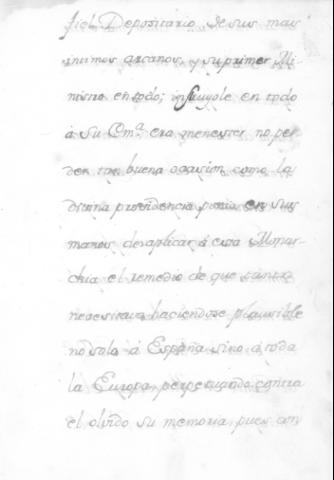 fiel Depositario de sus mas
intimos arcanos, y su primer Mi-
nistro en todo; in fluyole en todo
à Su Em.ª era menester no per-
der tan buena ocasion, como la
divina providencia ponia en sus
manos de aplicar á esta Monar-
chia el remedio de que tanto
necesitava haciendose plausible
no solo á España sino á toda
la Europa, perpetuando contra
el olvido su memoria, pues con